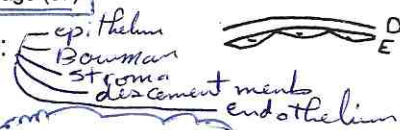 : epithelium
Bowman
stroma
descement memb
endothelium
D
E